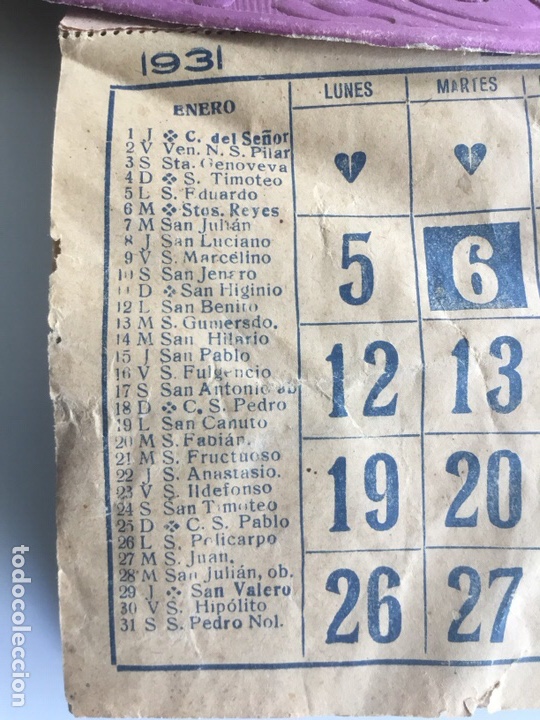 1931
ENERO
1 J ✤ C. del Señor
2 V Ven. N. S. Pilar
3 S Sta. Genoveva
4 D ✤ S. Timoteo
5 L S. Eduardo
6 M ✤ Stos. Reyes
7 M San Julián
8 J San Luciano
9 V S. Marcelino
10 S San Jenaro
11 D ✤ San Higinio
12 L San Benito
13 M S. Gumersdo.
14 M San Hilario
15 J San Pablo
16 V S. Fulgencio
17 S San Antonio ab
18 D ✤ C. S. Pedro
19 L San Canuto
20 M S. Fabián.
21 M S. Fructuoso
22 J S. Anastasio.
23 V S. Ildefonso
24 S San Timoteo
25 D ✤ C. S. Pablo
26 L S. Policarpo
27 M S. Juan.
28 M San Julián, ob.
29 J ✤ San Valero
30 V S. Hipólito
31 S S. Pedro Nol.
LUNES MARTES
5 6
12 13
19 20
26 27
todocoleccion.net